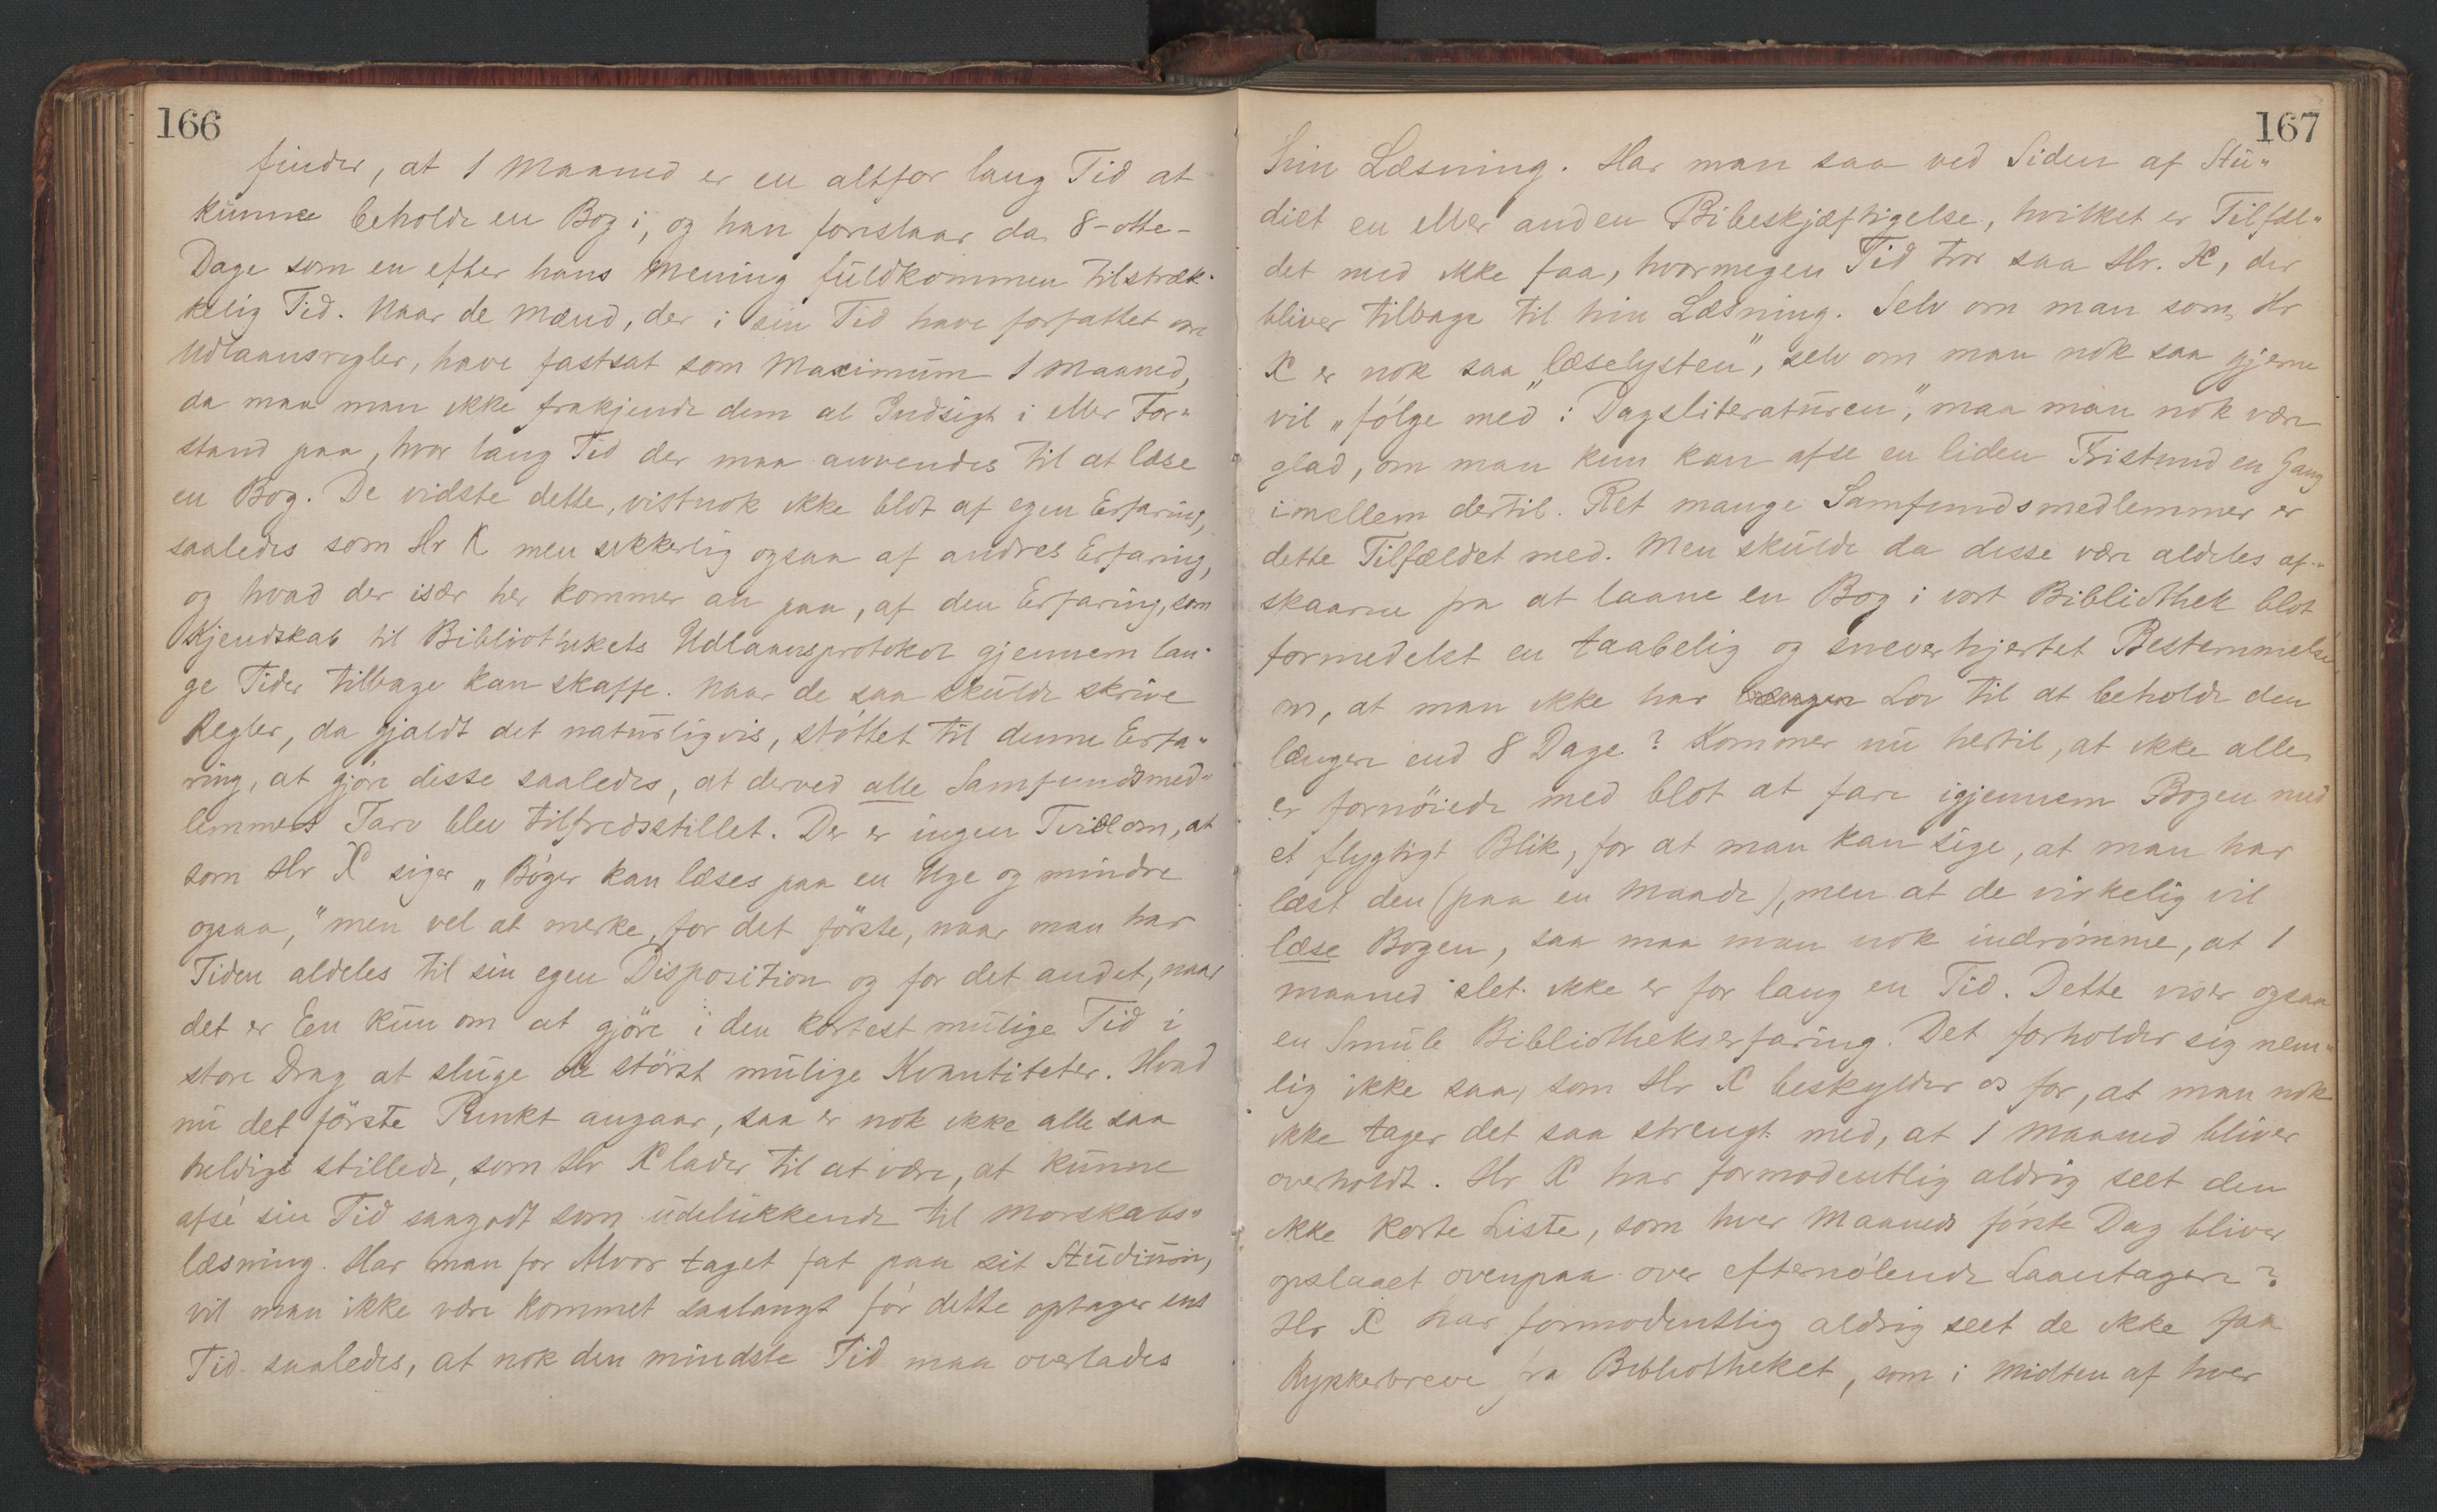 166
finder, at 1 Maaned er en altfor lang Tid at
kunne beholde en Bog i, og han foreslaar da 8-otte-
Dage som en efter hans Mening fuldkommen tilstræk-
kelig Tid. Naar de Mænd, der i sin Tid have forfattet vore
Udlaansregler, have fastsat som Maximum 1 Maaned,
da maa man ikke frakjende dem al Indsigt i eller For-
stand paa, hvor lang Tid der maa anvendes til at læse
en Bog. De vidste dette, vistnok ikke blot af egen Erfaring,
saaledes som Hr X men sikkerlig ogsaa af andres Erfaring,
og hvad der især her kommer an paa, af den Erfaring, som
Kjendskab til Bibliothekets Udlaansprotokol gjennem lan-
ge Tider tilbage kan skaffe. Naar de saa skulde skrive
Regler, da gjaldt det naturligvis, støttet til denne Erfa-
ring, at gjøre disse saaledes, at derved alle Samfundsmed-
lemmers Tarv blev tilfredsstillet. Der er ingen Tvil om, at
som Hr X siger „Bøger kan læses paa en Uge og mindre
ogsaa," men vel at merke, for det første, naar man har
Tiden aldeles til sin egen Disposition og for det andet, naar
det er Een kun om at gjöre i den kortest mulige Tid i
store Drag at sluge de störst mulige Kvantiteter. Hvad
nu det förste Punkt angaar, saa er nok ikke alle saa
heldigt stillede, som Hr X lader til at være, at kunne
afsé sin Tid saagodt som udelukkende til Morskabs-
læsning. Har man for Alvor taget fat paa sit Studium,
vil man ikke være kommet saalangt før dette optager ens
Tid saaledes, at nok den mindste Tid maa overlades
167
hin Læsning. Har man saa ved Siden af Stu-
diet en eller anden Bibeskjæftigelse, hvilket er Tilfæl-
det med ikke faa, hvormegen Tid tror saa Hr. X, der
bliver tilbage til hin Læsning. Selv om man som Hr
X er nok saa „læselysten", selv om man nok saa gjerne
vil „følge med i Dagsliteraturen", maa man nok være
glad, om man kun kan afse en liden Fristund en Gang
imellem dertil. Ret mange Samfundsmedlemmer er
dette Tilfældet med. Men skulde da disse være aldeles af-
skaarne fra at laane en Bog i vort Bibliothek blot
formedelst en taabelig og sneverhjertet Bestemmelse
om, at man ikke har Lov til at beholde den
længere end 8 Dage? Kommer nu hertil, at ikke alle
er fornöiede med blot at fare igjennem Bogen med
et flygtigt Blik, for at man kan sige, at man har
læst den (paa en Maade), men at de virkelig vil
læse Bogen, saa maa man nok indrømme, at 1
maaned slet ikke er for lang en Tid. Dette viser ogsaa
en Smule Bibliothekserfaring. Det forholder sig nem-
lig ikke saa, som Hr X beskylder os for, at man nok
ikke tager det saa strengt med, at 1 Maaned bliver
overholdt. Hr X har formodentlig aldrig seet den
ikke korte Liste, som hver Maaneds første Dag bliver
opslaaet ovenpaa over efternølende Laantagere?
Hr X har formodentlig aldrig seet de ikke faa
Rykkerbreve fra Bibliotheket, som i Midten af hver